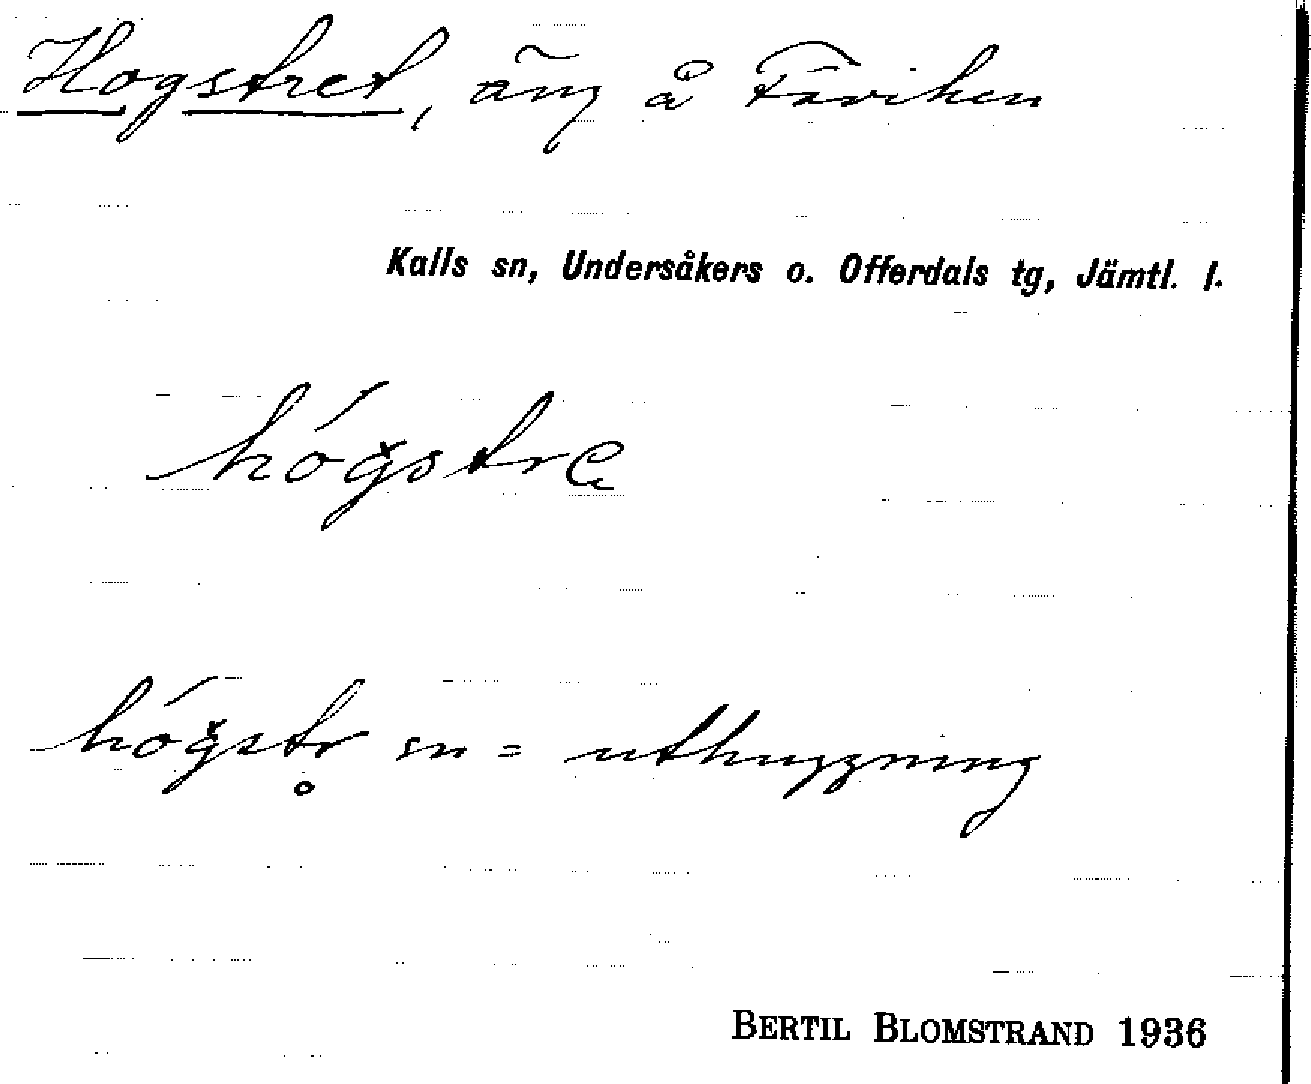 Hogstret, äng å Fäviken
Kalls sn, Undersåkers o. Offerdals tg, Jämtl. l.
hógstre
hógstr̥ sn = uthuggning
BERTIL BLOMSTRAND 1936